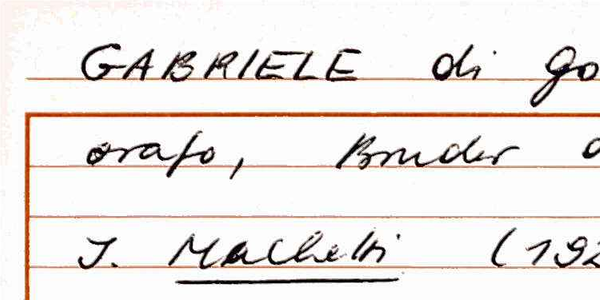 GABRIELE di Go
orafo, Bruder d
I. Machetti (192